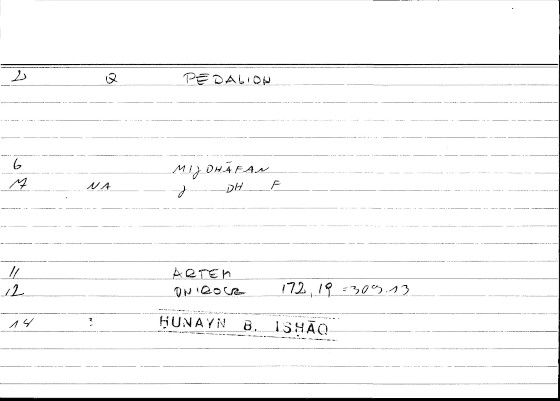 D Q PEDALION
6 MIJDHĀFAN
17 NA J DH F
11 ARTEM
12 ONIROCR 172,19 = 309.13
14 : ḤUNAYN B. ISḤĀQ